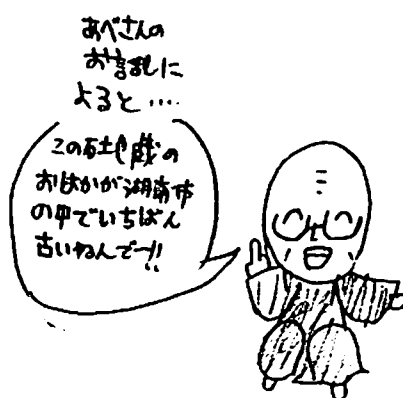 あべさんの
お話しに
よると‥‥
この石地蔵の
おはかが湖南市
の中でいちばん
古いねんで〜!!